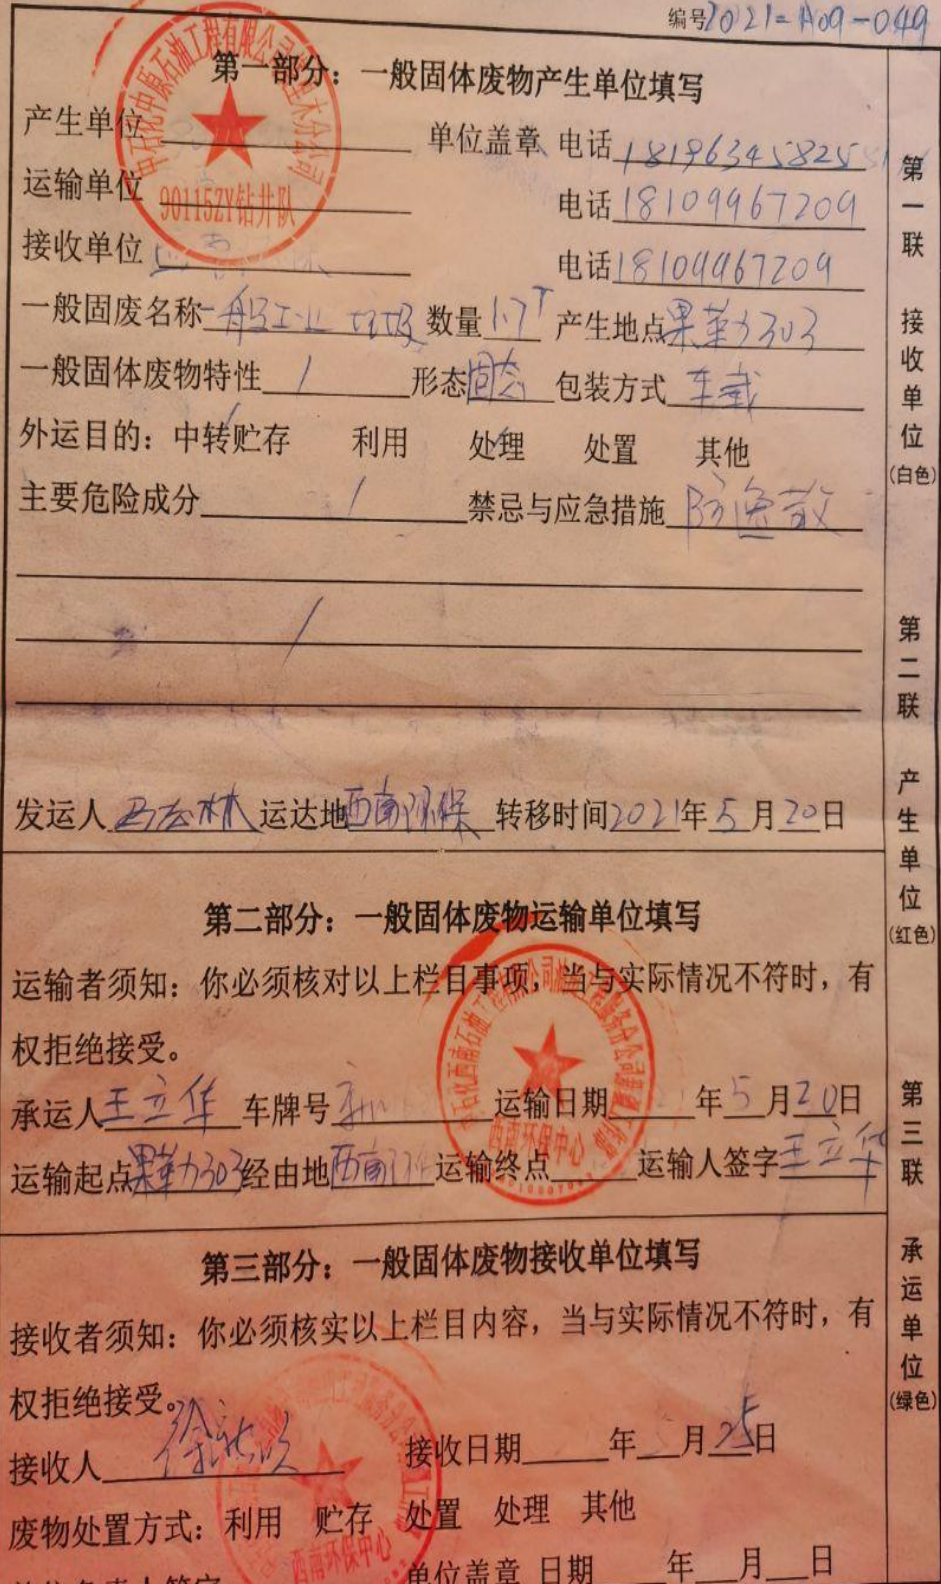 编号2021-A09-049
第一部分：一般固体废物产生单位填写
产生单位 单位盖章 电话18196345825
运输单位 电话18109967209
接收单位 电话18109967209
一般固废名称一般工业垃圾 数量1.7T 产生地点果勒303
一般固体废物特性 / 形态固态 包装方式车载
外运目的：中转贮存 利用 处理 处置 其他
主要危险成分 / 禁忌与应急措施防逸散
/
发运人 运达地西南环保 转移时间2021年5月20日
第二部分：一般固体废物运输单位填写
运输者须知：你必须核对以上栏目事项，当与实际情况不符时，有
权拒绝接受。
承运人王立华 车牌号新 运输日期 年5月20日
运输起点果勒303经由地西南环保 运输终点 运输人签字王立华
第三部分：一般固体废物接收单位填写
接收者须知：你必须核实以上栏目内容，当与实际情况不符时，有
权拒绝接受。
接收人 接收日期 年 月25日
废物处置方式：利用 贮存 处置 处理 其他
单位盖章 日期 年 月 日
第一联 接收单位(白色)
第二联 产生单位(红色)
第三联 承运单位(绿色)
中石化中原石油工程有限公司塔里木分公司
90115ZY钻井队
西南环保中心
西南环保中心